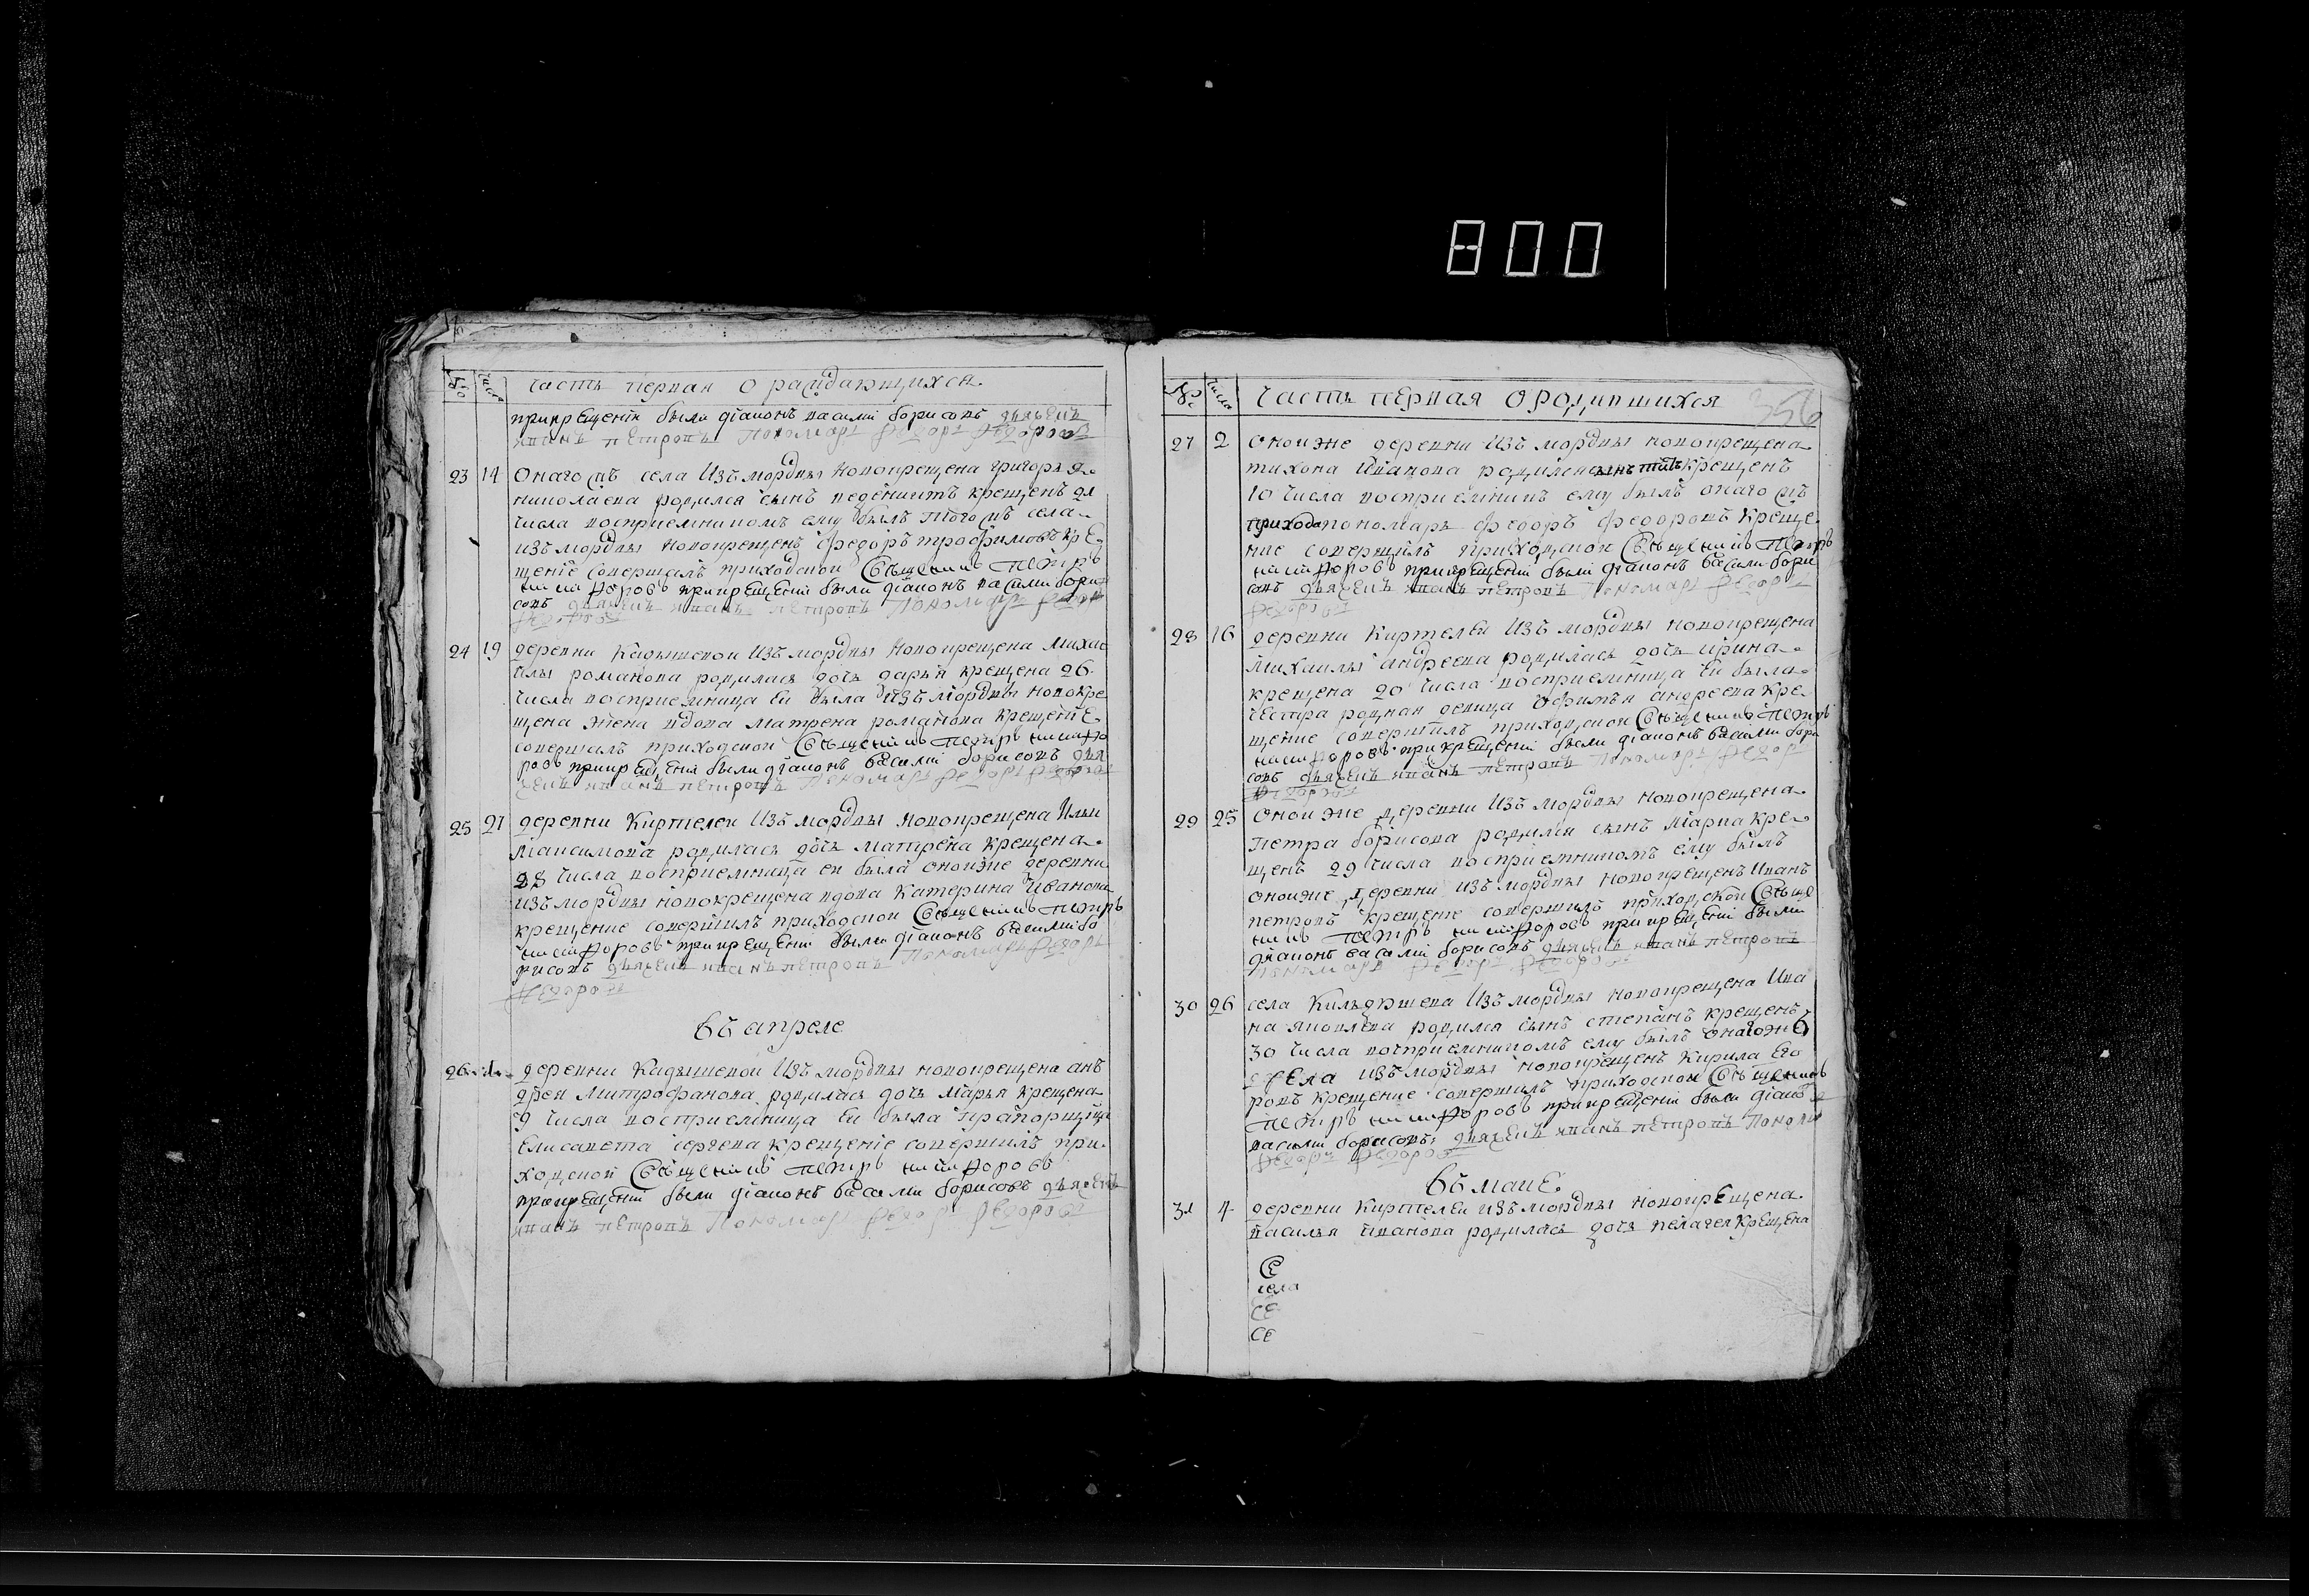 800
№ числа Часть первая О раждающихся
прикрещении были диаконъ василий борисовъ дьячекъ
иванъ петровъ Пономарь федоръ федоровъ
23 14 Онаго жъ села изъ мордвы новокрещена григорья
николаева родился сынъ веденихтъ крещенъ 21
числа восприемникомъ ему былъ того жъ села
изъ мордвы новокрещенъ федоръ трофимовъ кре
щение совершалъ приходской Священникъ петръ
никифоровъ прикрещении были диаконъ василий бори
совъ дьячекъ иванъ петровъ Пономарь федоръ
федоровъ
24 19 деревни Кадышевой изъ мордвы новокрещена Михаи
илы романова родилась дочь дарья крещена 26
числа восприемница ей была изъ мордвы новокре
щена жена вдова матрена романова крещение
совершалъ приходской Священникъ петръ никифо
ровъ прикрещении были диаконъ василий борисовъ дья
чекъ иванъ петровъ Пономарь федоръ федоровъ
25 21 деревни Киртелеи изъ мордвы новокрещена Ильи
максимова родилась дочь матрена крещена
28 числа восприемница ей была оной же деревни
изъ мордвы новокрещена вдова Катерина Иванова
крещение совершилъ приходской Священникъ петръ
никифоровъ прикрещении были диаконъ василий бо
рисовъ дьячекъ иванъ петровъ Пономарь федоръ
федоровъ
въ апреле
26 деревни Кадышевой изъ мордвы новокрещена ан
дрея Митрофанова родилась дочь Марья крещена
9 числа восприемница ей была прапорщица
Елисавета сергева крещение совершилъ при
ходской Священникъ петръ никифоровъ
прикрещении были диаконъ василий борисовъ дьячекъ
иванъ петровъ Пономарь федоръ федоровъ
№ числа Часть первая О родившихся 356
27 2 Оной же деревни изъ мордвы новокрещена
тихона Иванова родился сынъ крещенъ
10 числа восприемникъ ему былъ онаго жъ
прихода пономарь федоръ федоровъ креще
ние совершилъ приходской Священникъ петръ
никифоровъ прикрещении были диаконъ василий бори
совъ дьячекъ иванъ петровъ Пономарь федоръ
федоровъ
28 16 деревни Киртелеи изъ мордвы новокрещена
михаилы андреева родилась дочь ирина
крещена 20 числа восприемница ей была
сестра родная девица Офимья андреева кре
щение совершилъ приходской Священникъ петръ
никифоровъ прикрещении были диаконъ василий бори
совъ дьячекъ иванъ петровъ Пономарь федоръ
федоровъ
29 25 Оной же деревни изъ мордвы новокрещена
петра борисова родился сынъ марка кре
щенъ 29 числа восприемникомъ ему былъ
оной же деревни изъ мордвы новокрещенъ Иванъ
петровъ крещение совершилъ приходской Священ
никъ петръ никифоровъ прикрещении были
диаконъ василий борисовъ дьячекъ иванъ петровъ
Пономарь федоръ федоровъ
30 26 села Кильдюшева изъ мордвы новокрещена Ива
на яковлева родился сынъ степанъ крещенъ
30 числа восприемникомъ ему былъ онаго же
села изъ мордвы новокрещенъ Кирила его
ровъ крещение совершилъ приходской Священникъ
петръ никифоровъ прикрещении были диаконъ
василий борисовъ дьячекъ иванъ петровъ Пономарь
федоръ федоровъ
въ маие
31 4 деревни Киртелеи изъ мордвы новокрещена
василья иванова родилась дочь пелагея крещена
Се
села
се
се